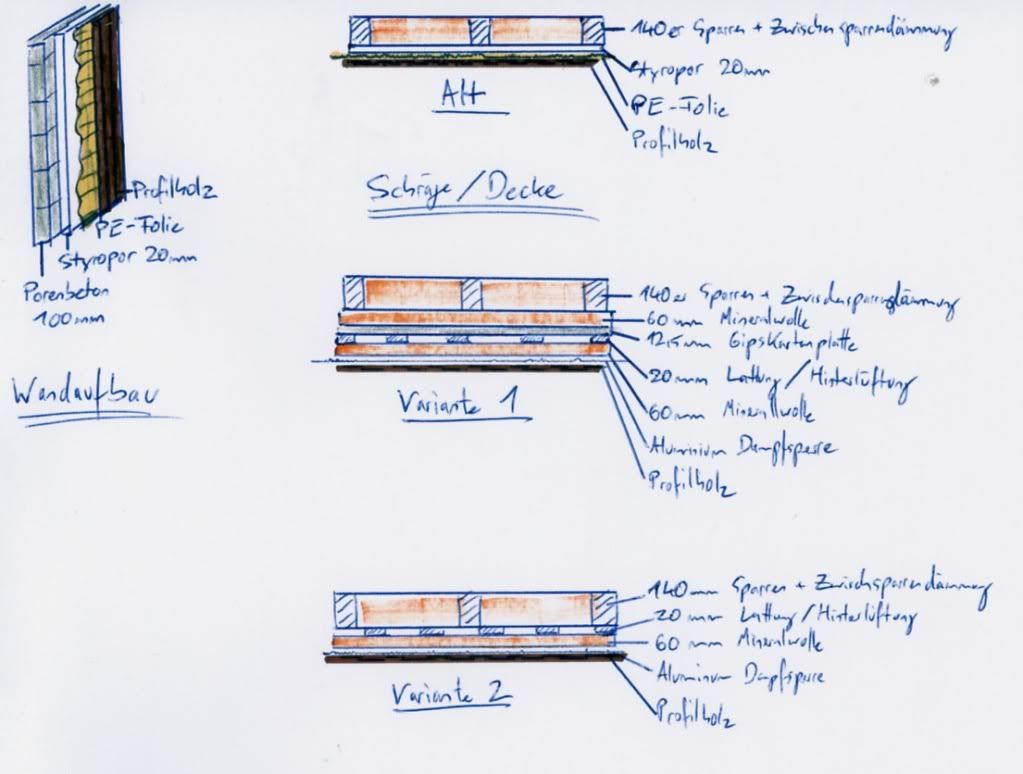 Profilholz
PE-Folie
Styropor 20mm
Porenbeton
100mm
Wandaufbau
140er Sparren + Zwischensparrendämmung
Styropor 20mm
PE-Folie
Profilholz
Alt
Schräge/Decke
140er Sparren + Zwischensparrendämmung
60mm Mineralwolle
12,5mm Gipskartenplatte
20mm Lattung/Hinterlüftung
60mm Minerallwolle
Aluminium Dampfsperre
Profilholz
Variante 1
140mm Sparren + Zwischsparrendämmung
20mm Lattung/Hinterlüftung
60mm Mineralwolle
Aluminium Dampfsperre
Profilholz
Variante 2